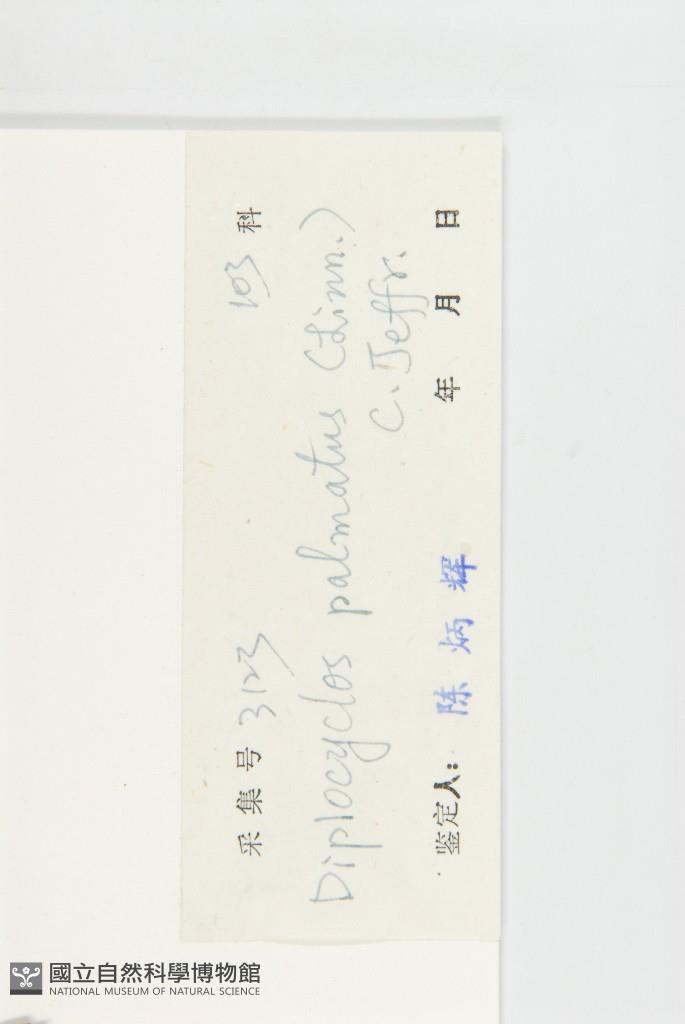 采集号 3123 103 科
Diplocyclos palmatus (Linn.)
C. Jeffr.
鉴定人: 陈炳辉 年 月 日
國立自然科學博物館
NATIONAL MUSEUM OF NATURAL SCIENCE